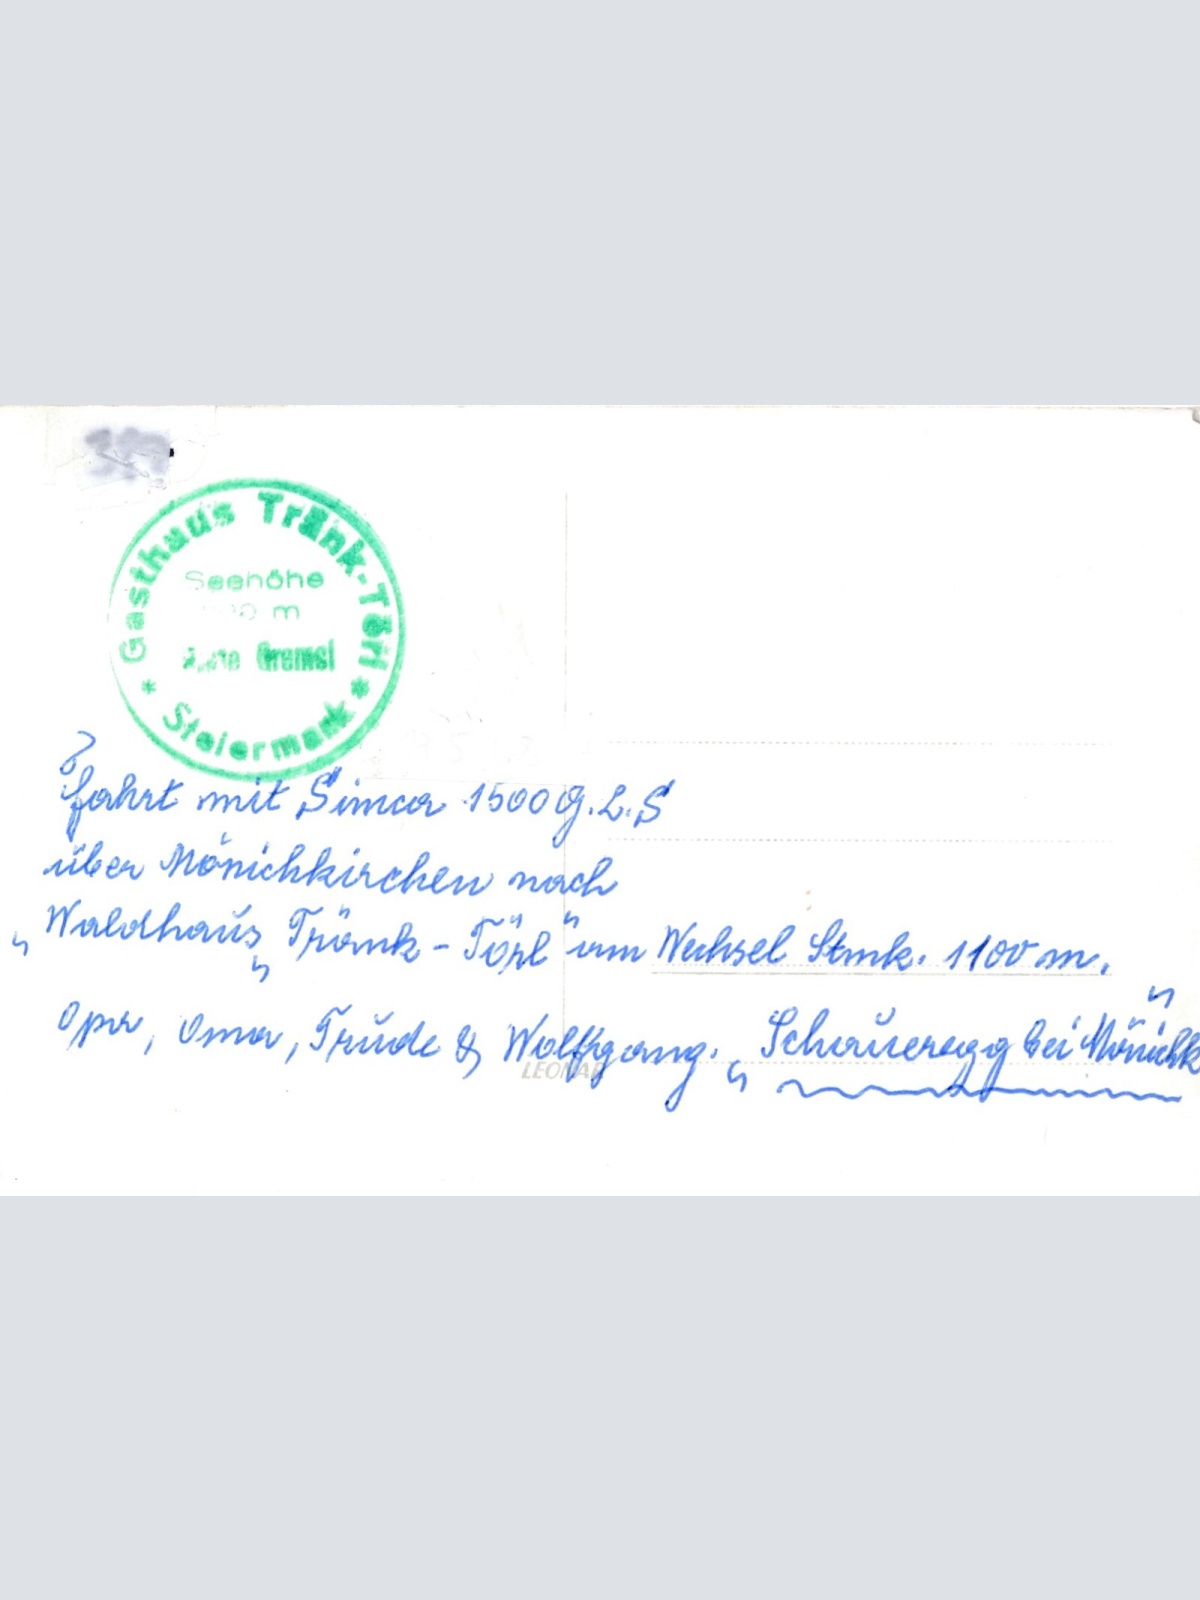 Gasthaus Tränk-Törl
Seehöhe
m
Gremsl
* Steiermark *
fahrt mit Simca 1500 G.L.S
über Mönichkirchen nach
"Waldhaus" Tränk-Törl" am Wechsel Stmk. 1100 m.
Opa, Oma, Trude & Wolfgang. "Schaueregg bei Mönichk"
LEONAR